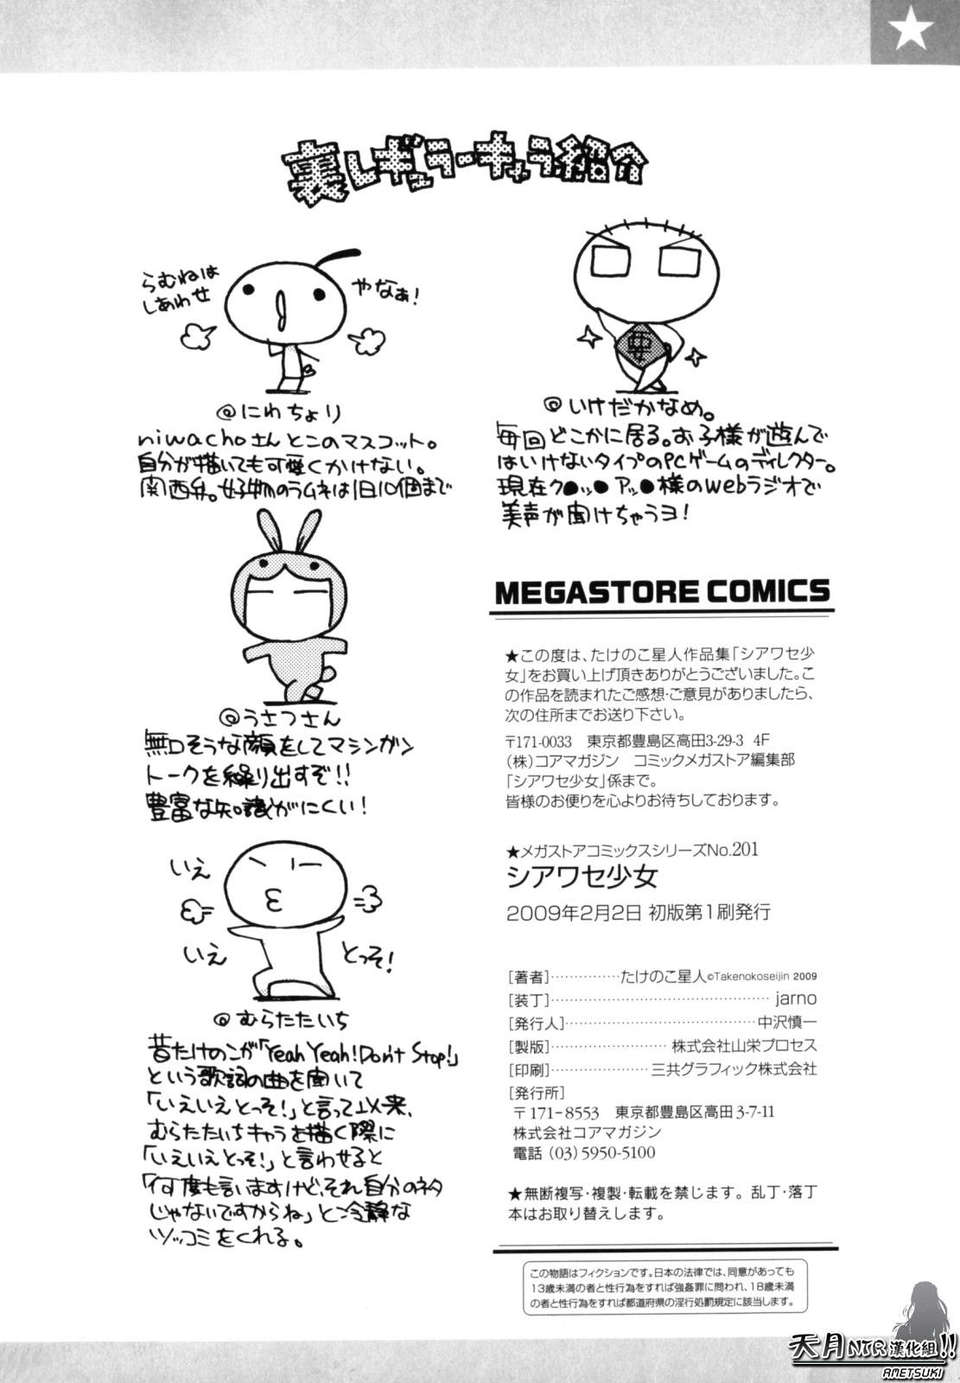 裏レギュラーキャラ紹介
らむねは
しあわせ
やなぁ!
@にわちょり
niwachoさんとこのマスコット。
自分が描いても可愛くかけない。
関西弁。好物のラムネは1日10個まで
@いけだかなめ。
毎回どこかに居る。お子様が遊んで
はいけないタイプのPCゲームのディレクター。
現在ク●ッ● アッ●様のWebラジオで
美声が聞けちゃうヨ!
@うさつさん
無口そうな顔をしてマシンガン
トークを繰り出すぞ!!
豊富な知識がにくい!
いえ
いえ
とっそ!
@むらたたいち
昔たけのこが「Yeah Yeah! Don't Stop!」
という歌詞の曲を聞いて
「いえいえとっそ!」と言って以来、
むらたたいちキャラを描く際に
「いえいえとっそ!」と言わせると
「何度も言いますけど、それ自分のネタ
じゃないですからね」と冷静な
ツッコミをくれる。
MEGASTORE COMICS
★この度は、たけのこ星人作品集「シアワセ少
女」をお買い上げ頂きありがとうございました。こ
の作品を読まれたご感想・ご意見がありましたら、
次の住所までお送り下さい。
〒171-0033 東京都豊島区高田3-29-3 4F
(株)コアマガジン コミックメガストア編集部
「シアワセ少女」係まで。
皆様のお便りを心よりお待ちしております。
★メガストアコミックスシリーズNo.201
シアワセ少女
2009年2月2日 初版第1刷発行
[著者]‥‥‥‥‥‥‥たけのこ星人©Takenokoseijin 2009
[装丁]‥‥‥‥‥‥‥‥‥‥‥‥‥‥‥‥‥‥jarno
[発行人]‥‥‥‥‥‥‥‥‥‥‥‥‥‥‥‥中沢慎一
[製版]‥‥‥‥‥‥‥‥‥‥株式会社山栄プロセス
[印刷]‥‥‥‥‥‥‥‥三共グラフィック株式会社
[発行所]
〒171-8553 東京都豊島区高田3-7-11
株式会社コアマガジン
電話 (03)5950-5100
★無断複写・複製・転載を禁じます。乱丁・落丁
本はお取り替えします。
この物語はフィクションです。日本の法律では、同意があっても
13歳未満の者と性行為をすれば強姦罪に問われ、18歳未満
の者と性行為をすれば都道府県の淫行処罰規定に該当します。
天月NTR漢化組!!
AMETSUKI